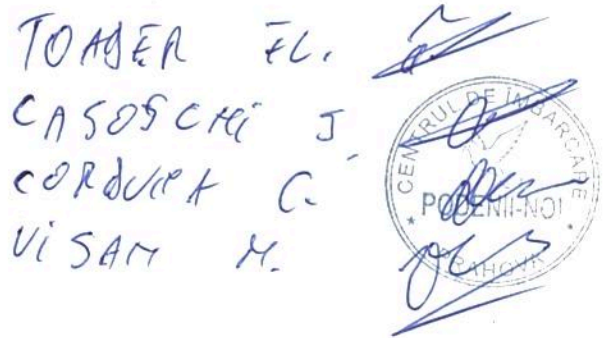 TOADER FL.
CASOSCHI J
CORDUCEA C.
VISAM M.
CENTRUL DE ÎMBARCARE
PODENII-NOI
PRAHOVA